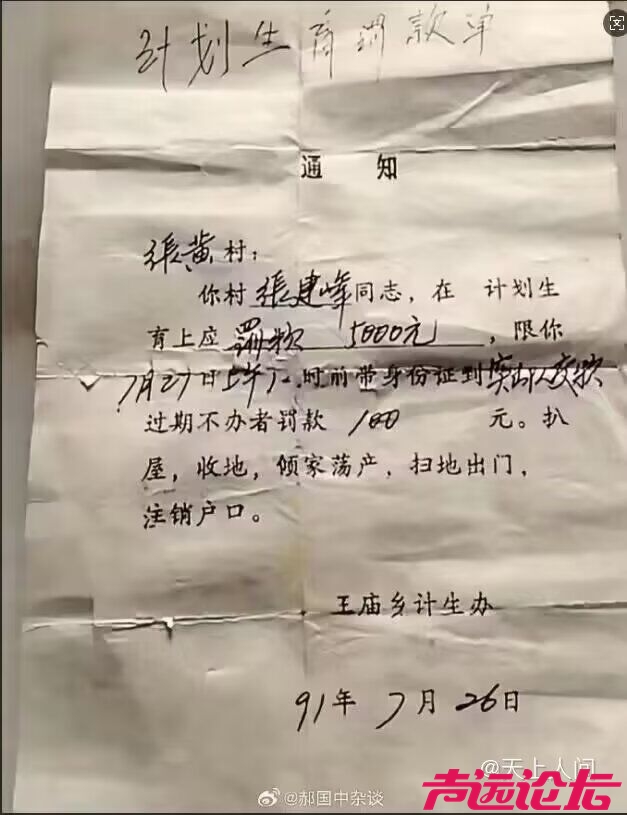 计划生育调款单
通 知
张黄村:
你村张建峰同志,在 计划生
育上应罚款 5000元,限你
7月27日上午12时前带身份证到 交款
过期不办者罚款 100 元。扒
屋,收地,倾家荡产,扫地出门,
注销户口。
王庙乡计生办
91年7月26日
@天上人间
@郝国中杂谈
声远论坛